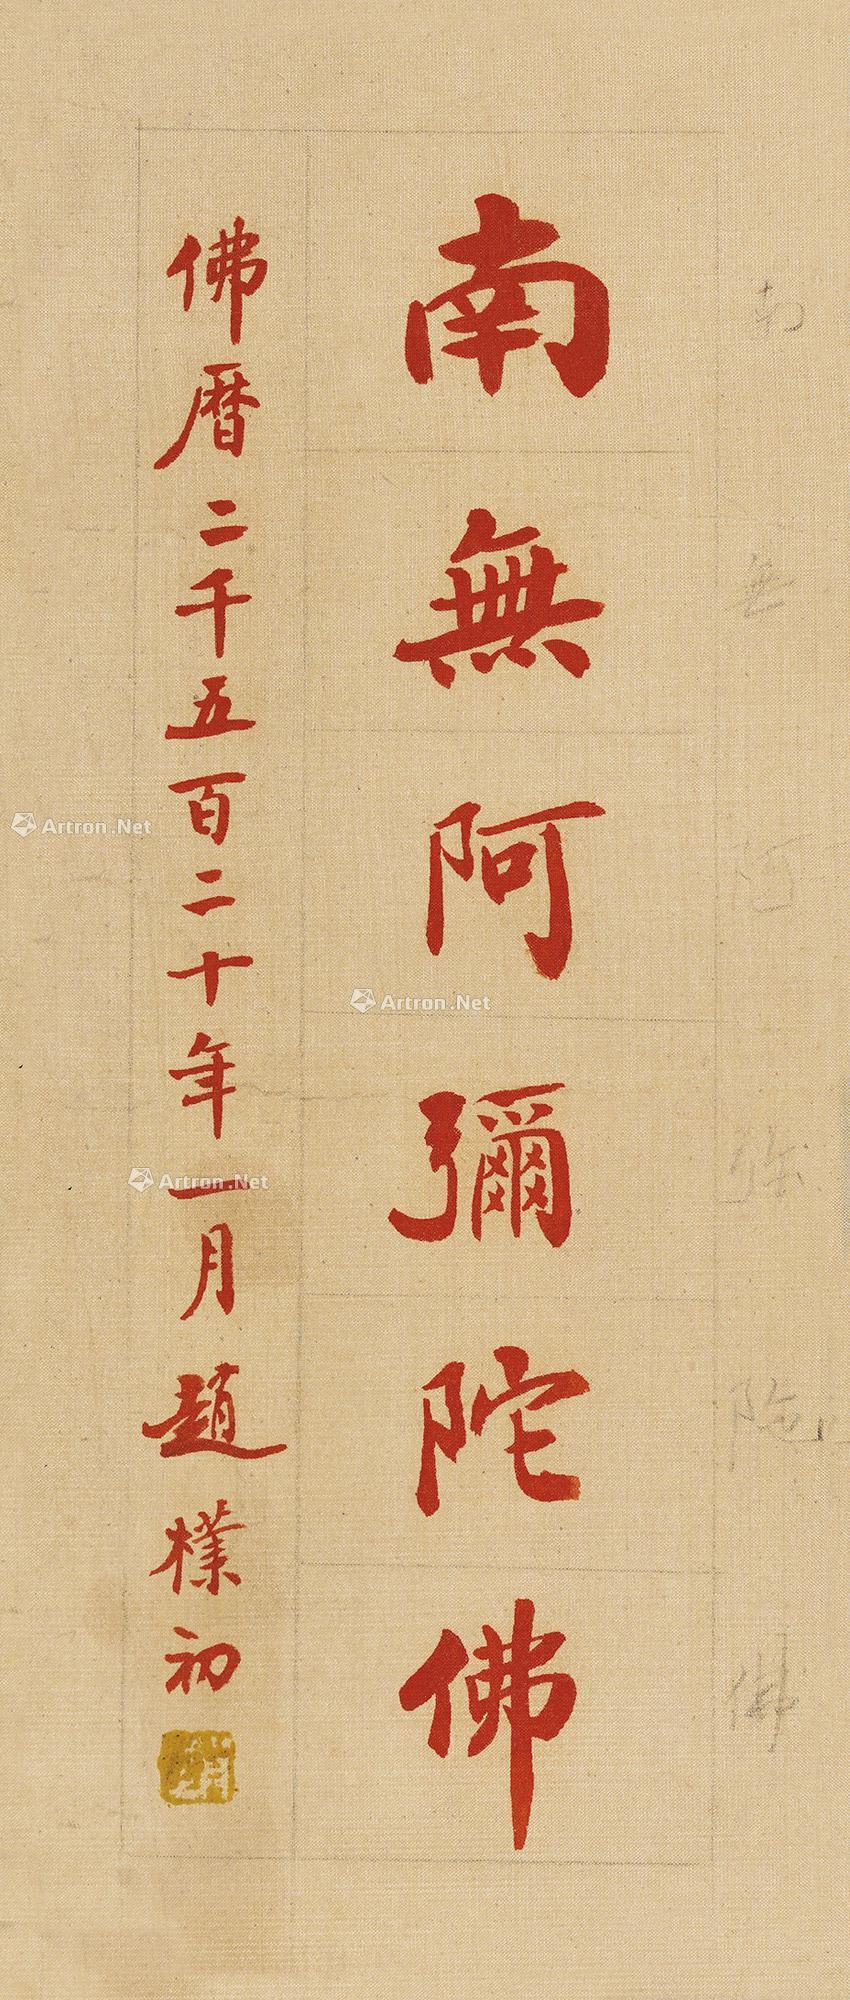 南無阿彌陀佛
佛曆二千五百二十年一月趙樸初
南無阿弥陀佛
Artron.Net
Artron.Net
Artron.Net